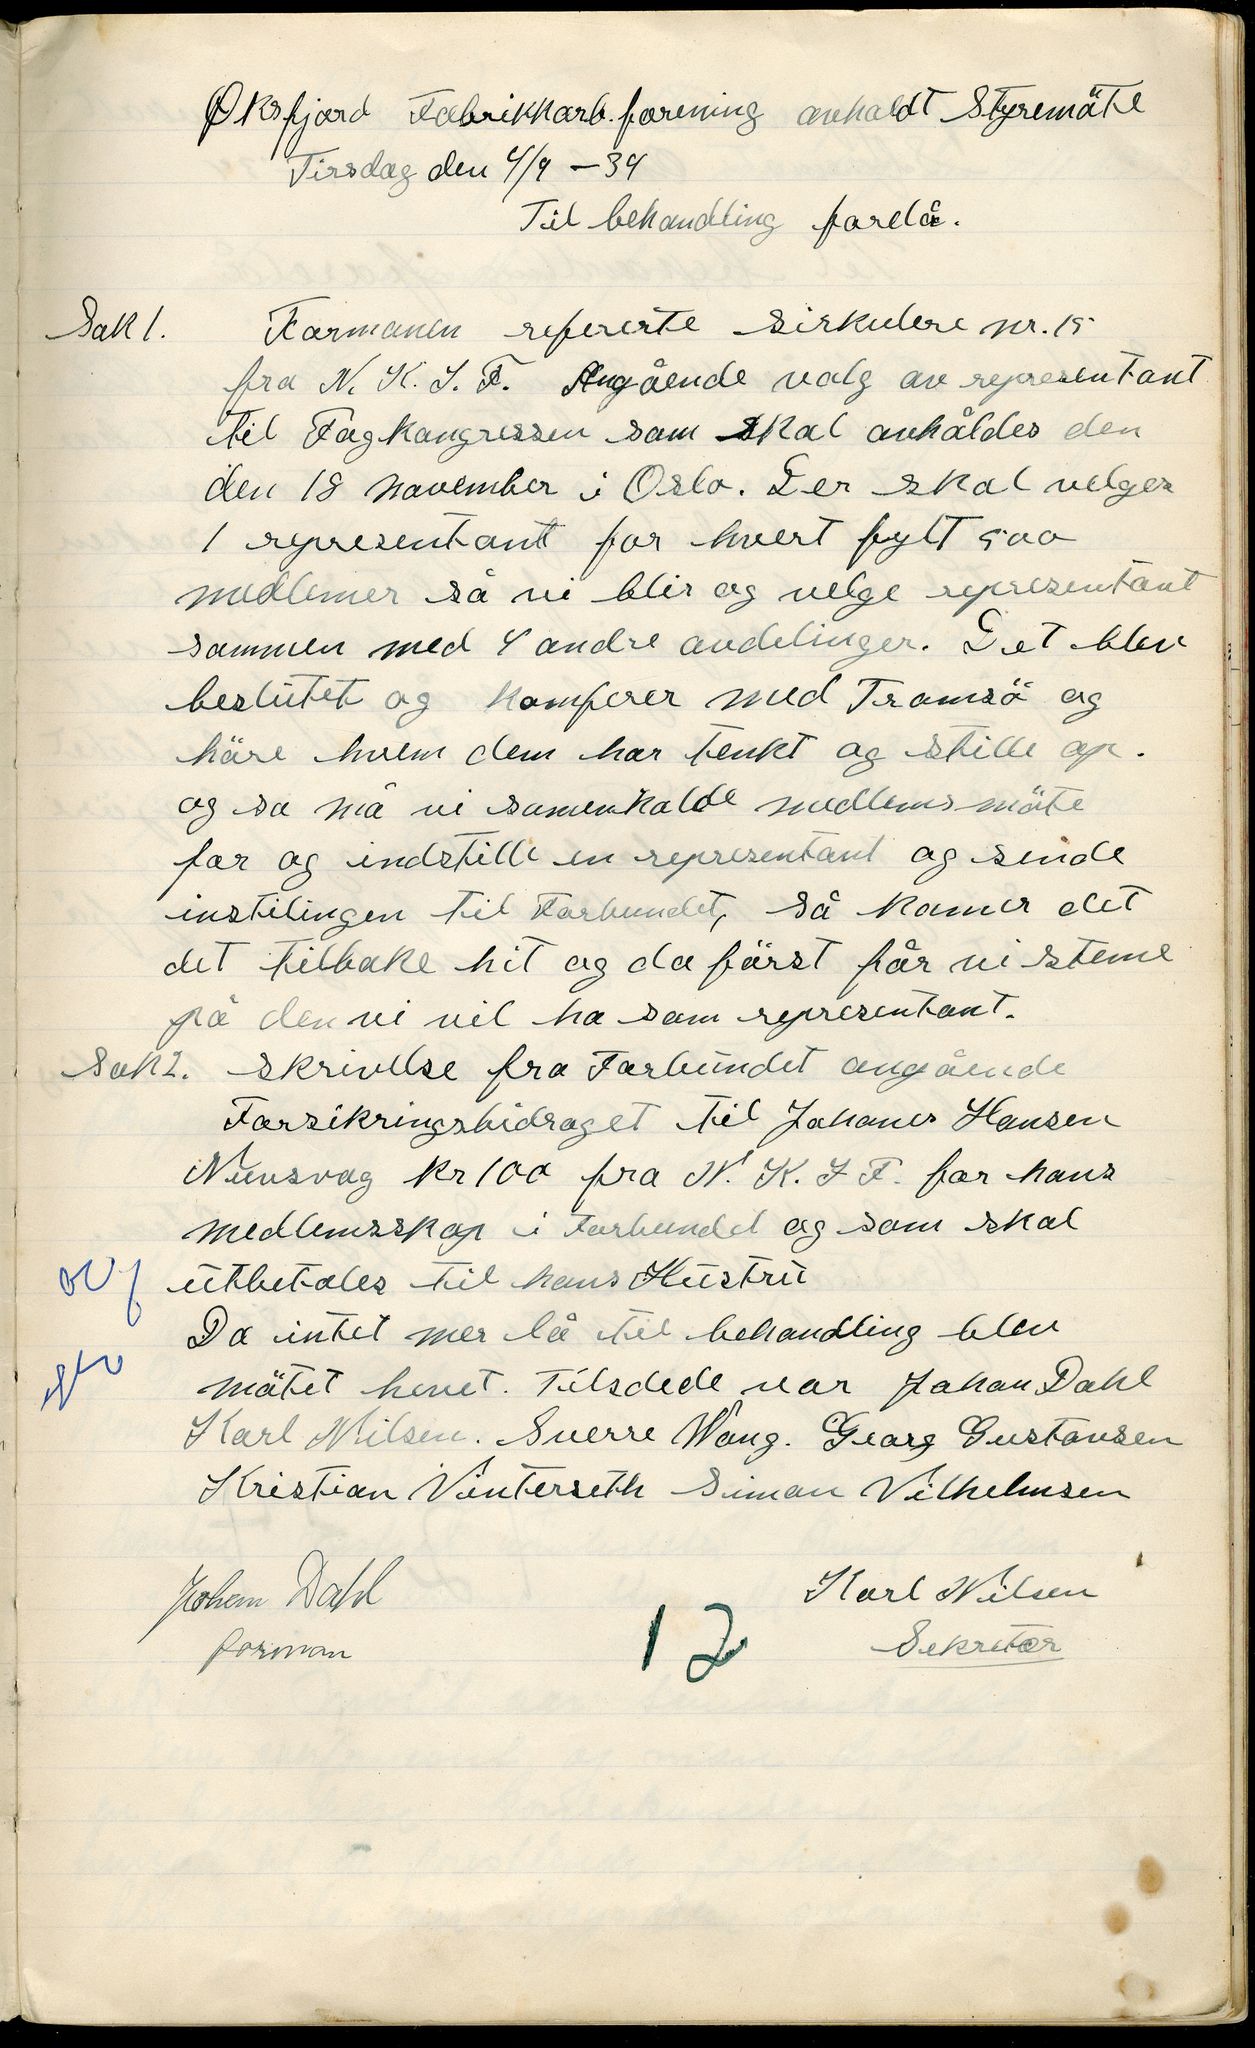 Øksfjord Fabrikkarb.forening avholdt Styremöte
Tirsdag den 4/9 – 34
Til behandling forelå.
Sak 1. Formanen refererte sirkulere nr. 15
fra N. K. I. F. Angående valg av representant
til Fagkongressen som skal avhåldes den
den 18 november i Oslo. Der skal velges
1 representant for hvert fylt 500
medlemer så vi blir og velge representant
sammen med 4 andre avdelinger. Det blev
beslutet og komferer med Tromsö og
höre hvem dem har tenkt og stille op.
og så må vi samenkalde medlemsmöte
for og indstille en representant og sende
instilingen til Forbundet, så komer det
det tilbake hit og da först får vi steme
på den vi vil ha som representant.
Sak 2. Skrivelse fra Forbundet angående
Forsikringsbidraget til Johanes Hansen
Nuvsvag kr 100 fra N. K. I F. for hans
medlemsskap i Forbundet og som skal
utbetales til hans Hustru
Da intet mer lå til behandling blev
mötet hevet. Tilsdede var Johan Dahl
Karl Nilsen. Sverre Wang. Georg Gustavsen
Kristian Vinterseth Simon Vilhelmsen
Johan Dahl
forman
Karl Nilsen
Sekretær
12